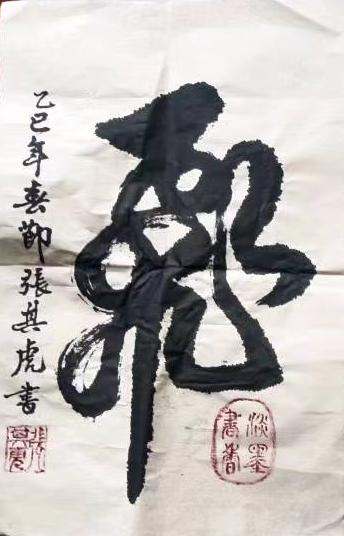 飛
乙巳年春節張其虎書
張其虎
淡墨書香